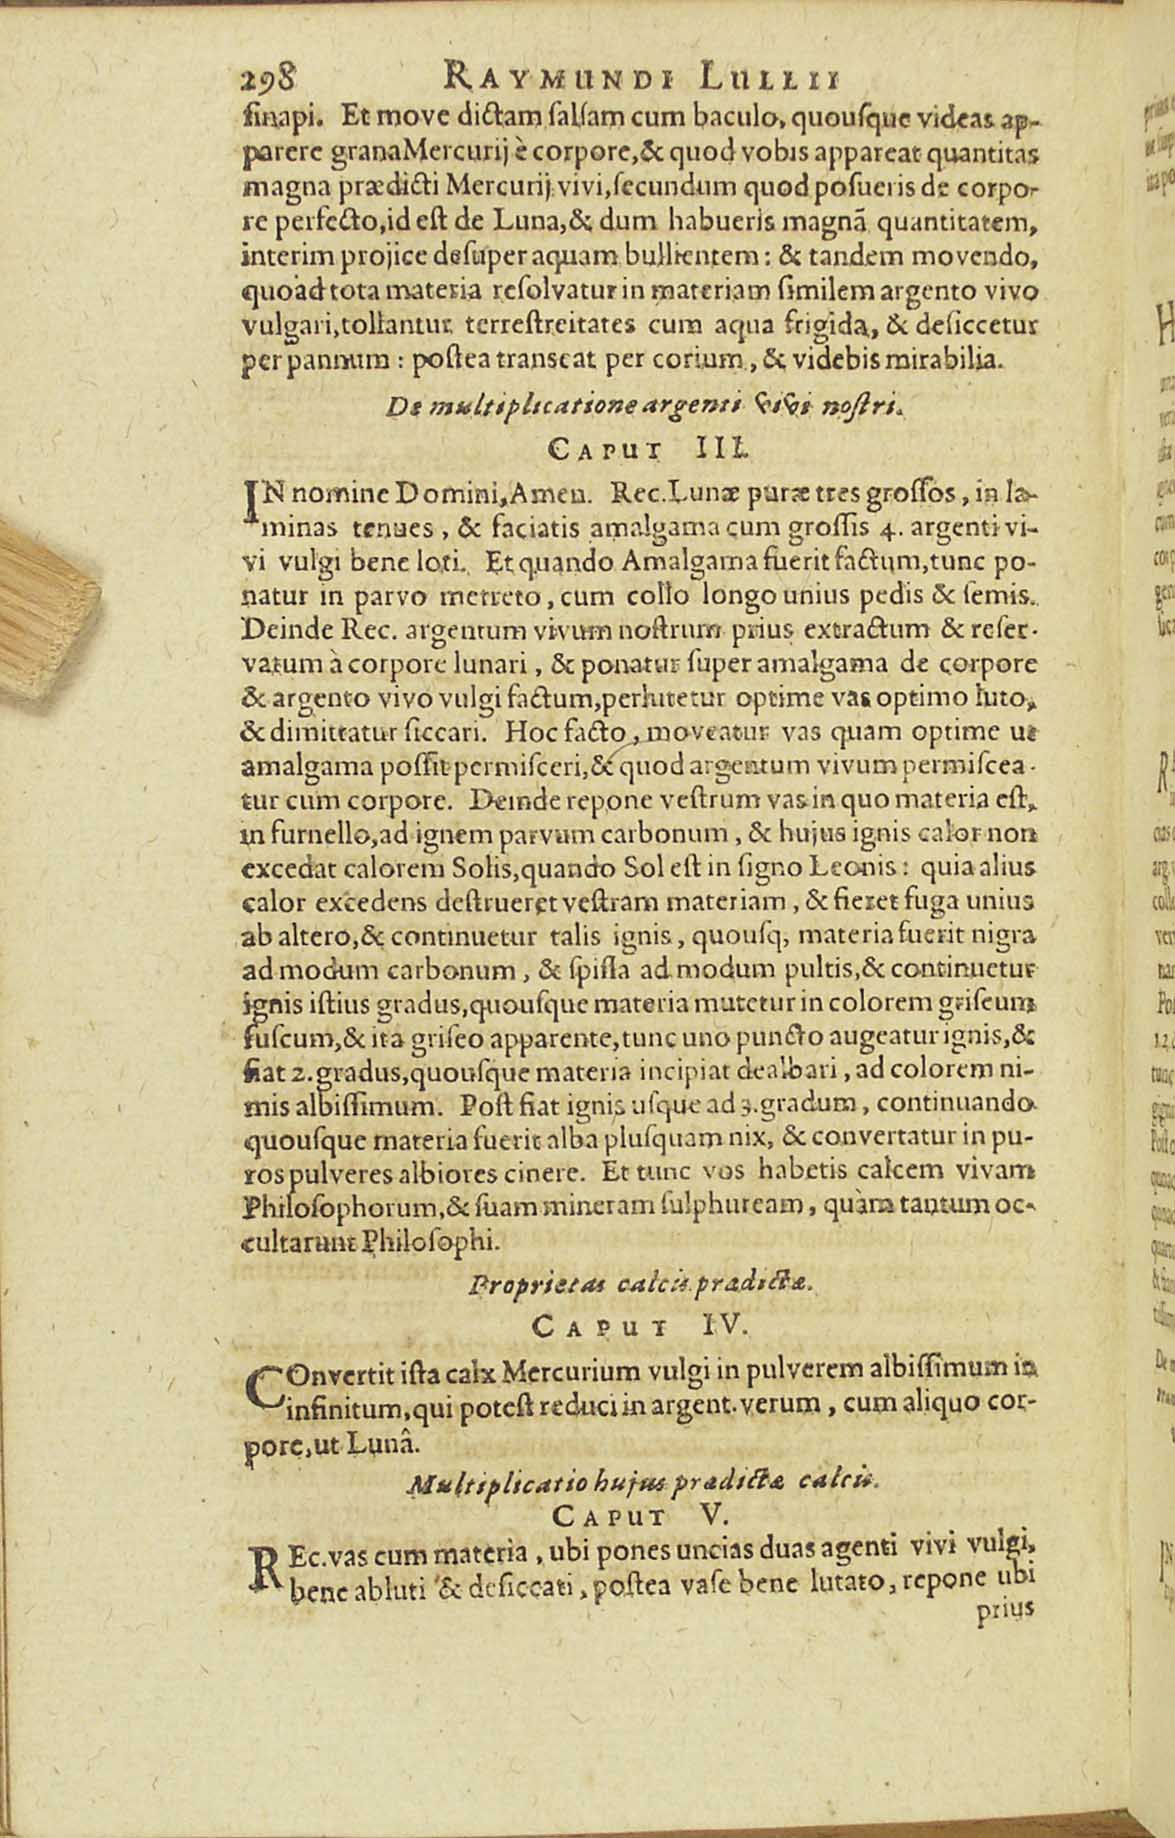 298 RAYMUNDI LULLII
sinapi. Et move dictam salsam cum baculo, quousque videas ap-
parere grana Mercurij è corpore, & quod vobis appareat quantitas
magna prædicti Mercurij vivi, secundum quod posueris de corpo-
re perfecto, id est de Luna, & dum habueris magnã quantitatem,
interim projice desuper aquam bullientem: & tandem movendo,
quoad tota materia resolvatur in materiam similem argento vivo
vulgari, tollantur terrestreitates cum aqua frigida, & desiccetur
per pannum: postea transeat per corium, & videbis mirabilia.
De multiplicatione argenti vivi nostri.
CAPUT III.
IN nomine Domini, Amen. Rec. Lunæ puræ tres grossos, in la-
minas tenues, & faciatis amalgama cum grossis 4. argenti vi-
vi vulgi bene loti. Et quando Amalgama fuerit factum, tunc po-
natur in parvo metreto, cum collo longo unius pedis & semis.
Deinde Rec. argentum vivum nostrum prius extractum & reser-
vatum à corpore lunari, & ponatur super amalgama de corpore
& argento vivo vulgi factum, perlutetur optime vas optimo luto,
& dimittatur siccari. Hoc facto, moveatur vas quam optime ut
amalgama possit permisceri, & quod argentum vivum permiscea-
tur cum corpore. Deinde repone vestrum vas in quo materia est,
in furnello, ad ignem parvum carbonum, & hujus ignis calor non
excedat calorem Solis, quando Sol est in signo Leonis: quia alius
calor excedens destrueret vestram materiam, & fieret fuga unius
ab altero, & continuetur talis ignis, quousq, materia fuerit nigra
ad modum carbonum, & spissa ad modum pultis, & continuetur
ignis istius gradus, quousque materia mutetur in colorem griseum
fuscum, & ita griseo apparente, tunc uno puncto augeatur ignis, &
fiat 2. gradus, quousque materia incipiat dealbari, ad colorem ni-
mis albissimum. Post fiat ignis usque ad 3. gradum, continuando
quousque materia fuerit alba plusquam nix, & convertatur in pu-
ros pulveres albiores cinere. Et tunc vos habetis calcem vivam
Philosophorum, & suam mineram sulphuream, quàm tantum oc-
cultarunt Philosophi.
Proprietas calcis prædictæ.
CAPUT IV.
COnvertit ista calx Mercurium vulgi in pulverem albissimum in
infinitum, qui potest reduci in argent. verum, cum aliquo cor-
pore, ut Lunâ.
Multiplicatio hujus prædictæ calcis.
CAPUT V.
REc. vas cum materia, ubi pones uncias duas agenti vivi vulgi,
bene abluti & desiccati, postea vase bene lutato, repone ubi
prius